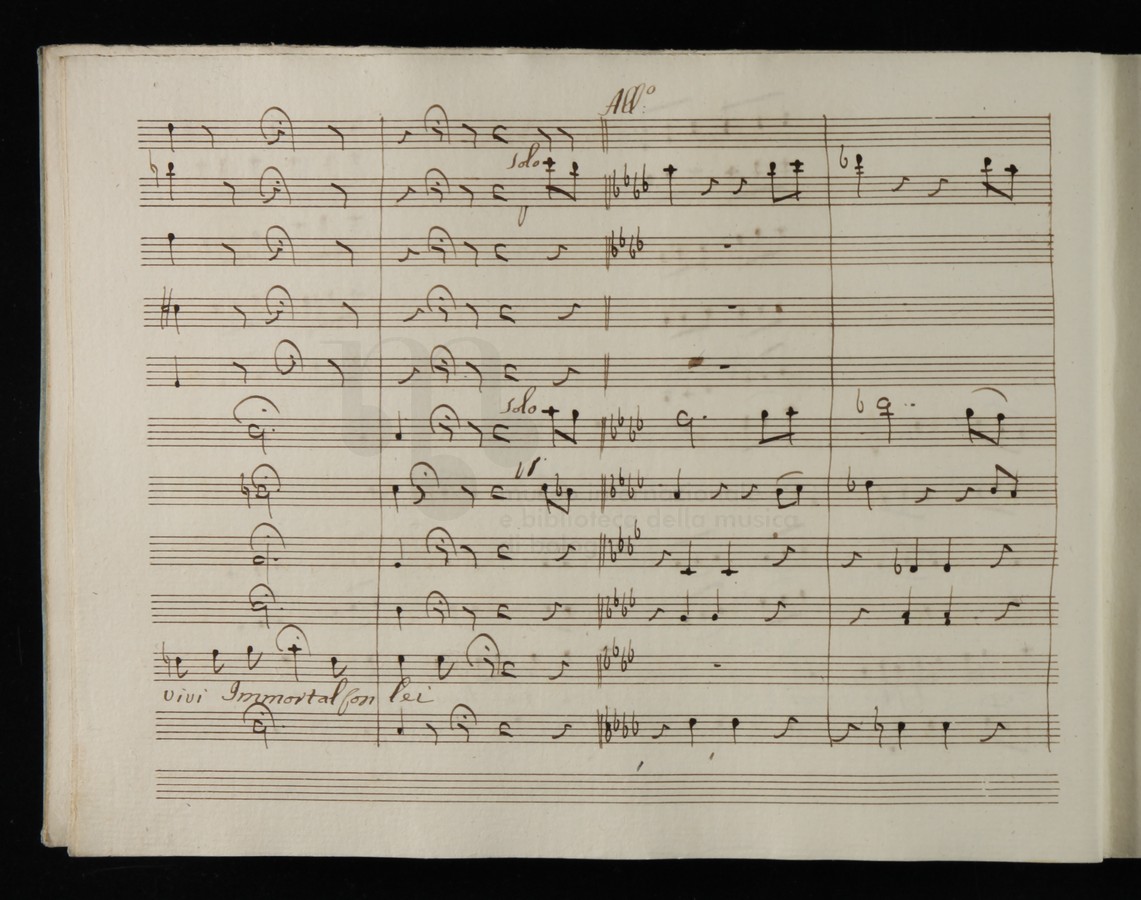 All.o
Solo
Solo
e biblioteca della musica
vivi Immortal son lei